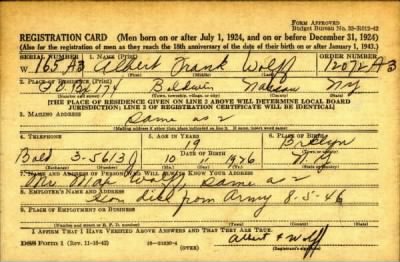 FORM APPROVED
Budget Bureau No. 33-R012-42
REGISTRATION CARD—(Men born on or after July 1, 1924, and on or before December 31, 1924)
(Also for the registration of men as they reach the 18th anniversary of the date of their birth on or after January 1, 1943.)
SERIAL NUMBER 1. NAME (Print) ORDER NUMBER
W 163 A3 Albert Frank Wolff 12072 A3
(First) (Middle) (Last)
2. PLACE OF RESIDENCE (Print)
P.O. Box 174 Baldwin Nassau NY
(Number and street) (Town, township, village, or city) (County) (State)
[THE PLACE OF RESIDENCE GIVEN ON LINE 2 ABOVE WILL DETERMINE LOCAL BOARD
JURISDICTION; LINE 2 OF REGISTRATION CERTIFICATE WILL BE IDENTICAL]
3. MAILING ADDRESS
Same as 2
[Mailing address if other than place indicated on line 2. If same, insert word same]
4. TELEPHONE 5. AGE IN YEARS 6. PLACE OF BIRTH
19 Brklyn
DATE OF BIRTH
Bald 3-5613J 10 11 1926 N.Y.
(Exchange) (Number) (Mo.) (Day) (Yr.) (State or country)
7. NAME AND ADDRESS OF PERSON WHO WILL ALWAYS KNOW YOUR ADDRESS
Same as 2
8. EMPLOYER'S NAME AND ADDRESS
disc from Army 8-5-46
9. PLACE OF EMPLOYMENT OR BUSINESS
(Number and street or R. F. D. number) (Town) (County) (State)
I AFFIRM THAT I HAVE VERIFIED ABOVE ANSWERS AND THAT THEY ARE TRUE.
DSS Form 1 (Rev. 11-16-42) (OVER) Albert F Wolff